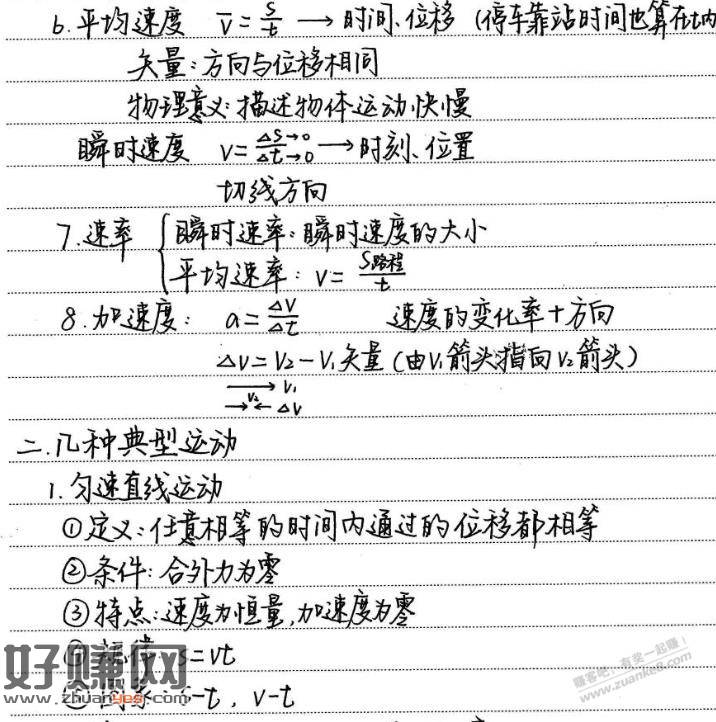 6.平均速度 v̄=s/t → 时间、位移 (停车靠站时间也算在t内
矢量:方向与位移相同
物理意义:描述物体运动快慢
瞬时速度 v=Δs→0/Δt→0 → 时刻、位置
切线方向
7.速率 { 瞬时速率:瞬时速度的大小
平均速率: v=s路程/t
8.加速度: a=Δv/Δt 速度的变化率+方向
Δv=v₂-v₁矢量(由v₁箭头指向v₂箭头)
→ v₁
→ v₂ ← Δv
二.几种典型运动
1.匀速直线运动
①定义:任意相等的时间内通过的位移都相等
②条件:合外力为零
③特点:速度为恒量,加速度为零
s=vt
s-t, v-t
好赚网
www.zhuanyes.com
赚客吧,有奖一起赚!
www.zuanke8.com